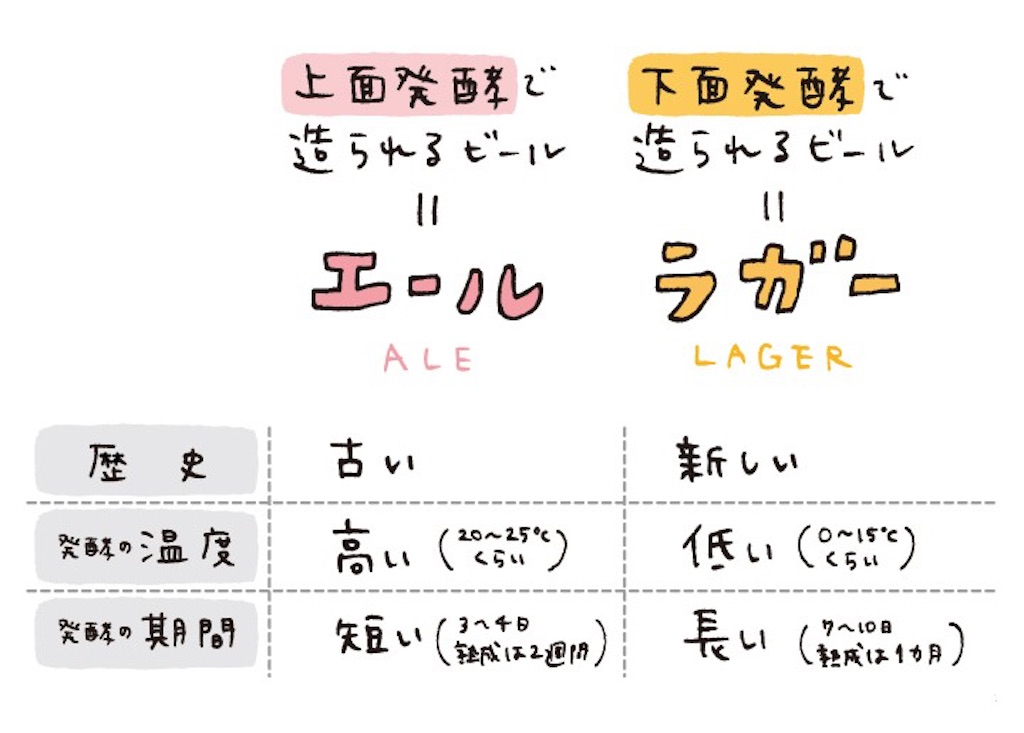 上面発酵で
造られるビール
=
エール
ALE
下面発酵で
造られるビール
=
ラガー
LAGER
歴史
古い
新しい
発酵の温度
高い(20〜25℃
くらい)
低い(0〜15℃
くらい)
発酵の期間
短い(3〜4日
熟成は2週間)
長い(7〜10日
熟成は1カ月)